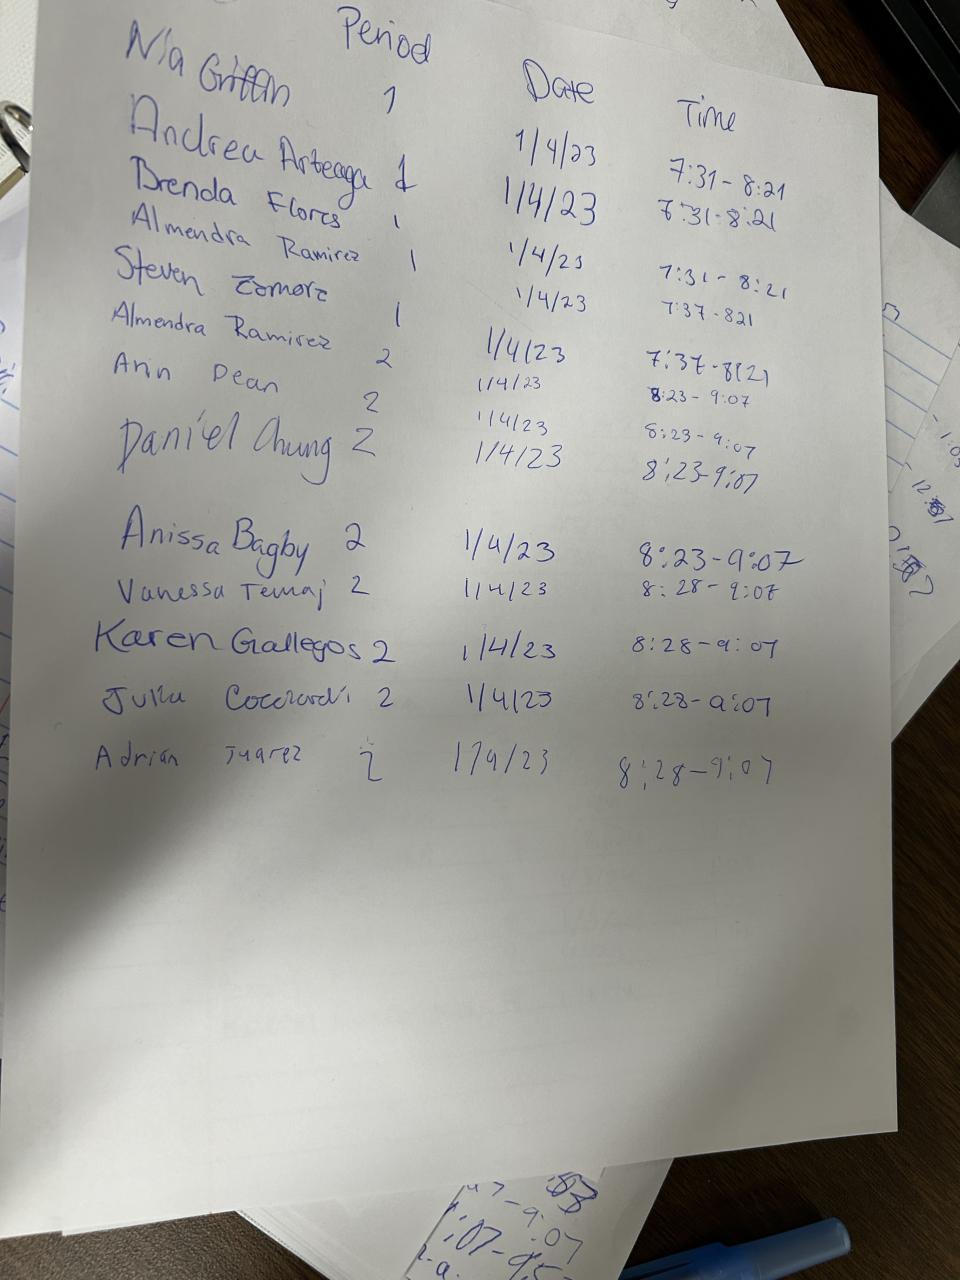 Period Date Time
Nia Griffin 1 1/4/23 7:31-8:21
Andrea Arteaga 1 1/4/23 7:31-8:21
Brenda Flores 1 1/4/23 7:31-8:21
Almendra Ramirez 1 1/4/23 7:37-821
Steven 1 1/4/23 7:37-8:21
Almendra Ramirez 2 1/4/23 8:23-9:07
Arin Dean 2 1/4/23 8:23-9:07
Daniel Chung 2 1/4/23 8:23-9:07
Anissa Bagby 2 1/4/23 8:23-9:07
Vanessa Temaj 2 1/4/23 8:28-9:07
Karen Gallegos 2 1/4/23 8:28-9:07
Julia 2 1/4/23 8:28-9:07
Adrian Juarez 2 1/4/23 8:28-9:07